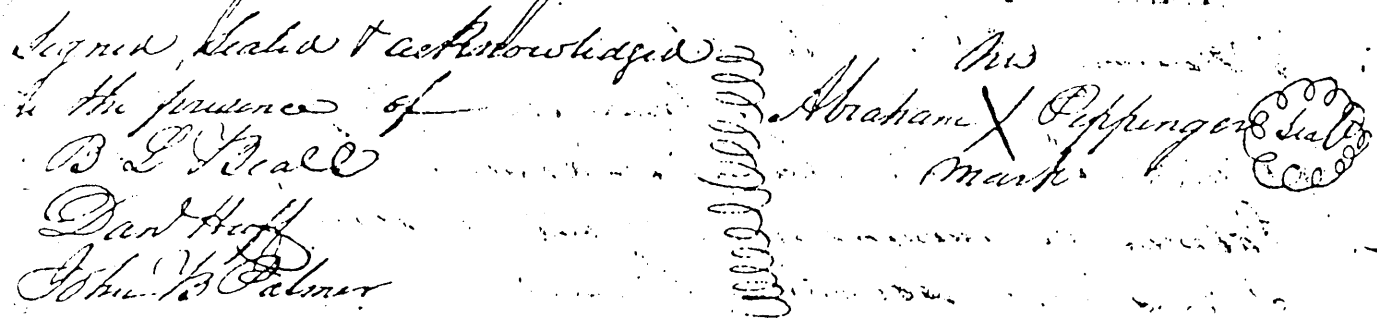 Signed Sealed & acknowledged
in the presence of
B L Beall
Danl Huff
John B Palmer
his
Abraham X Pippenger Seal
mark